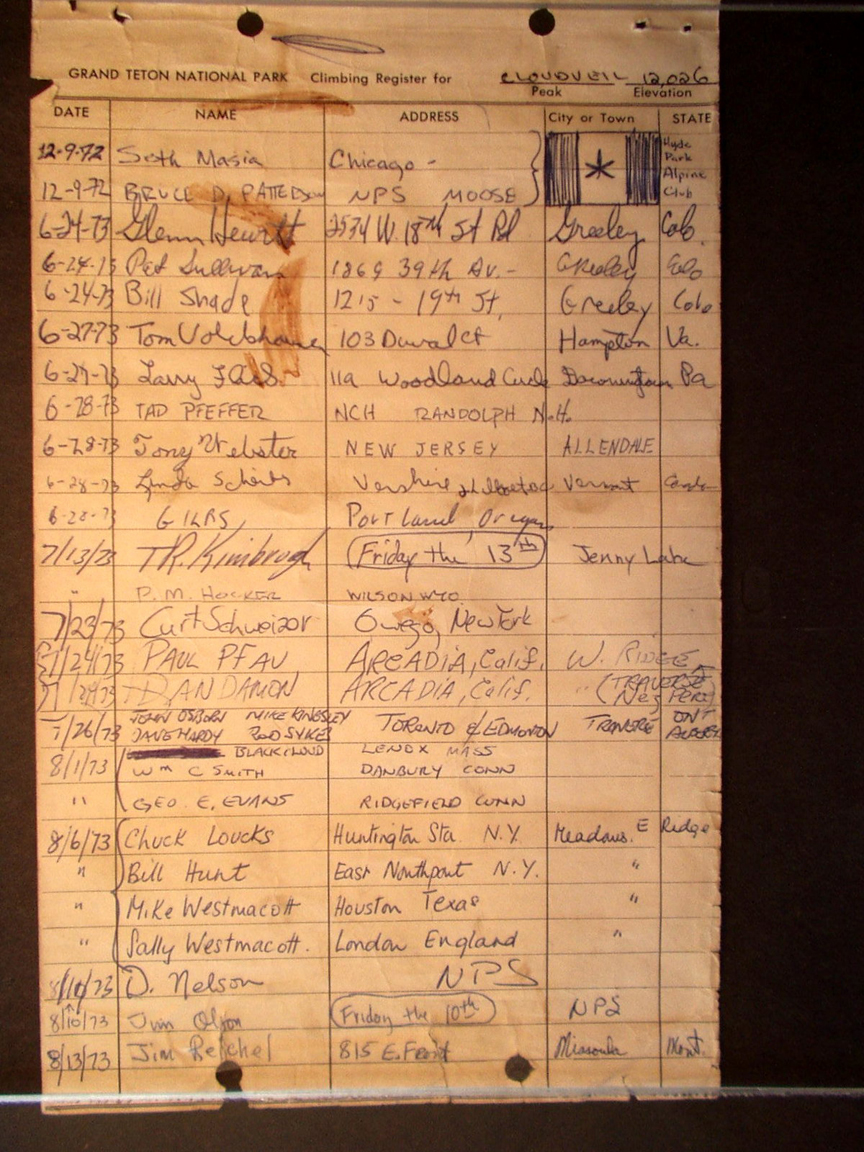 GRAND TETON NATIONAL PARK Climbing Register for CLOUDVEIL 12,026
Peak Elevation
DATE NAME ADDRESS City or Town STATE
12-9-72 Seth Masia Chicago - Hyde Park Alpine Club
12-9-72 BRUCE D. PATTERSON NPS MOOSE
6-24-73 Glenn Hewitt 2534 W. 18TH St Rd Greeley Colo.
6-24-73 Pat Sullivan 1869 39th Av. - Greeley Colo
6-24-73 Bill Shade 1215 - 19th St, Greeley Colo
6-27-73 Tom 103 Duval Ct Hampton Va.
6-27-73 Larry 11a Woodland Circle Pa
6-28-73 TAD PFEFFER NCH RANDOLPH N.H.
6-28-73 Tony Webster NEW JERSEY ALLENDALE
6-28-73 Linda Vershire Vermont
6-28-73 GILRS, Portland, Oregon
7/13/73 TR. Kimbrough Friday the 13th Jenny Lake
" P. M. HOCKER WILSON WYO
7/23/73 Curt Schweizer Owego, New York
7/24/73 PAUL PFAU ARCADIA, Calif. W. RIDGE
7/24/73 DAN DAMON ARCADIA, Calif. " (TRAVERSE Nez Perce)
7/26/73 JOHN OSBORN MIKE KINGSLEY TORONTO & EDMONTON TRAVERSE ONT
DAVE HARDY ROD SYKES
8/1/73 BLACKCLOUD LENOX MASS
Wm C SMITH DANBURY CONN
" GEO. E. EVANS RIDGEFIELD CONN
8/6/73 Chuck Loucks Huntington Sta. N.Y. Meadows. E Ridge
" Bill Hunt East Northport N.Y. "
" Mike Westmacott Houston Texas "
" Sally Westmacott. London England "
8/10/73 D. Nelson NPS
8/10/73 Jim Olson Friday the 10th NPS
8/13/73 Jim Reichel 815 E. Front Missoula Mont.